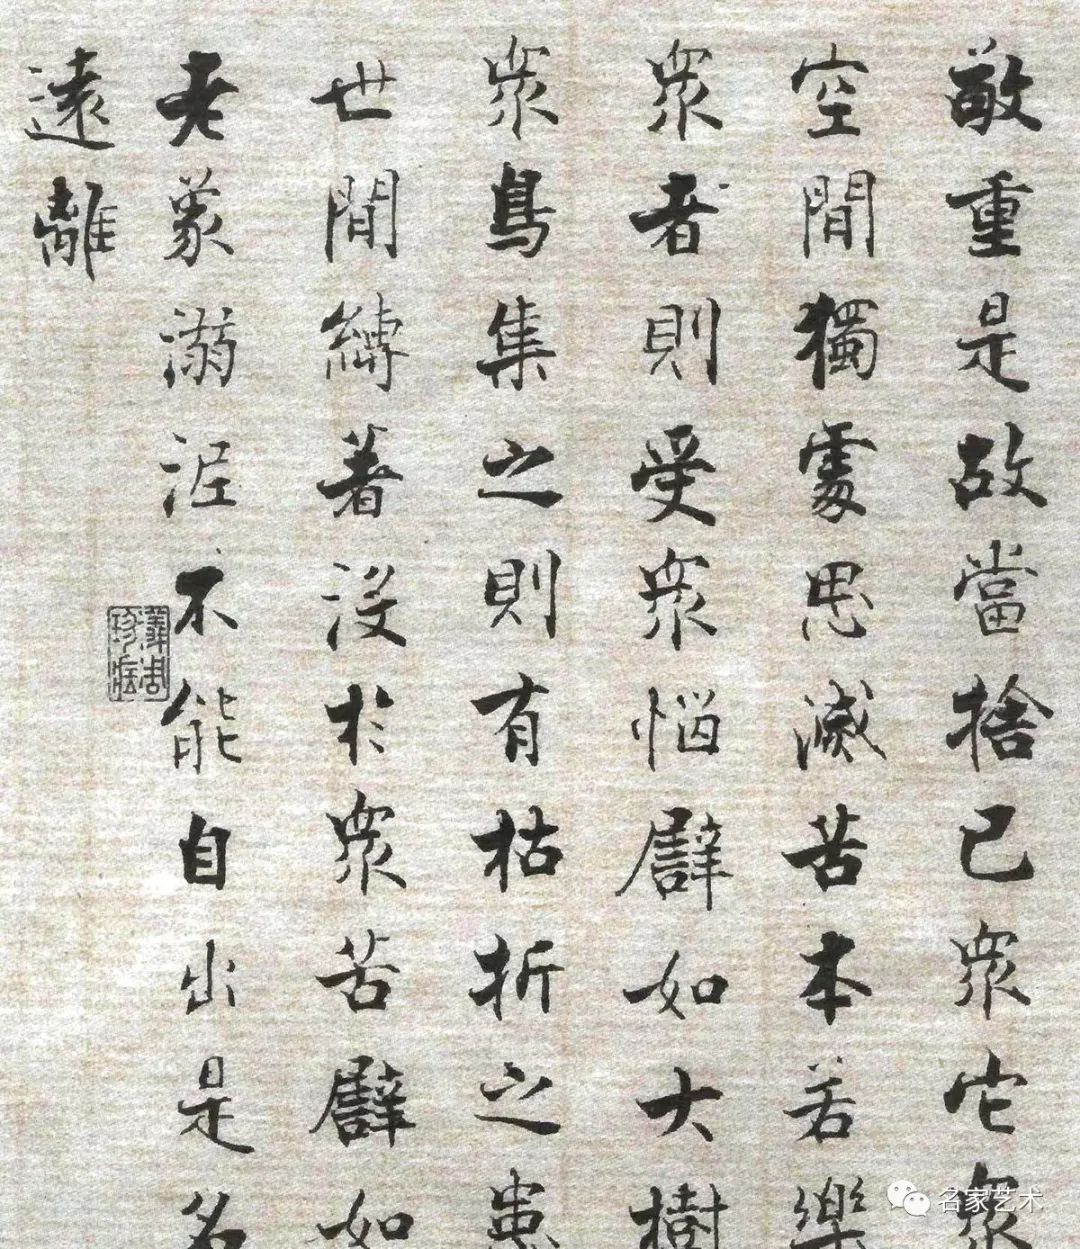 敬重是故當捨己眾它眾
空閒獨處思滅苦本若樂
眾者則受眾惱譬如大樹
眾鳥集之則有枯折之患
世閒縛著沒於眾苦譬如
老象溺泥不能自出是名
遠離
珍痃
名家艺术